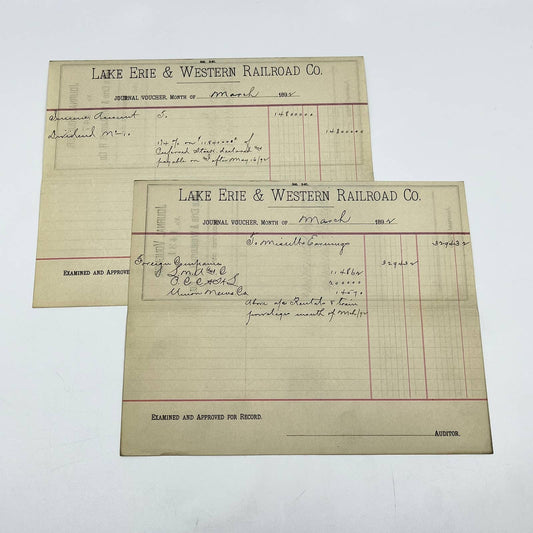 LAKE ERIE & WESTERN RAILROAD CO.
JOURNAL VOUCHER, MONTH OF March 1892
Account To 14800000
Dividend No 10 14800000
1¼% on $11840000 of
Preferred Stock declared
payable on & after May 16/92
EXAMINED AND APPROVED
LAKE ERIE & WESTERN RAILROAD CO.
JOURNAL VOUCHER, MONTH OF March 1892
To Miscell's Earnings 329432
Foreign Companies 329432
L. N. A & C 114862
C. C. C & St L 200000
Union News Co 14570
Above a/c Rentals & train
privileges month of Mch/92
EXAMINED AND APPROVED FOR RECORD.
AUDITOR.